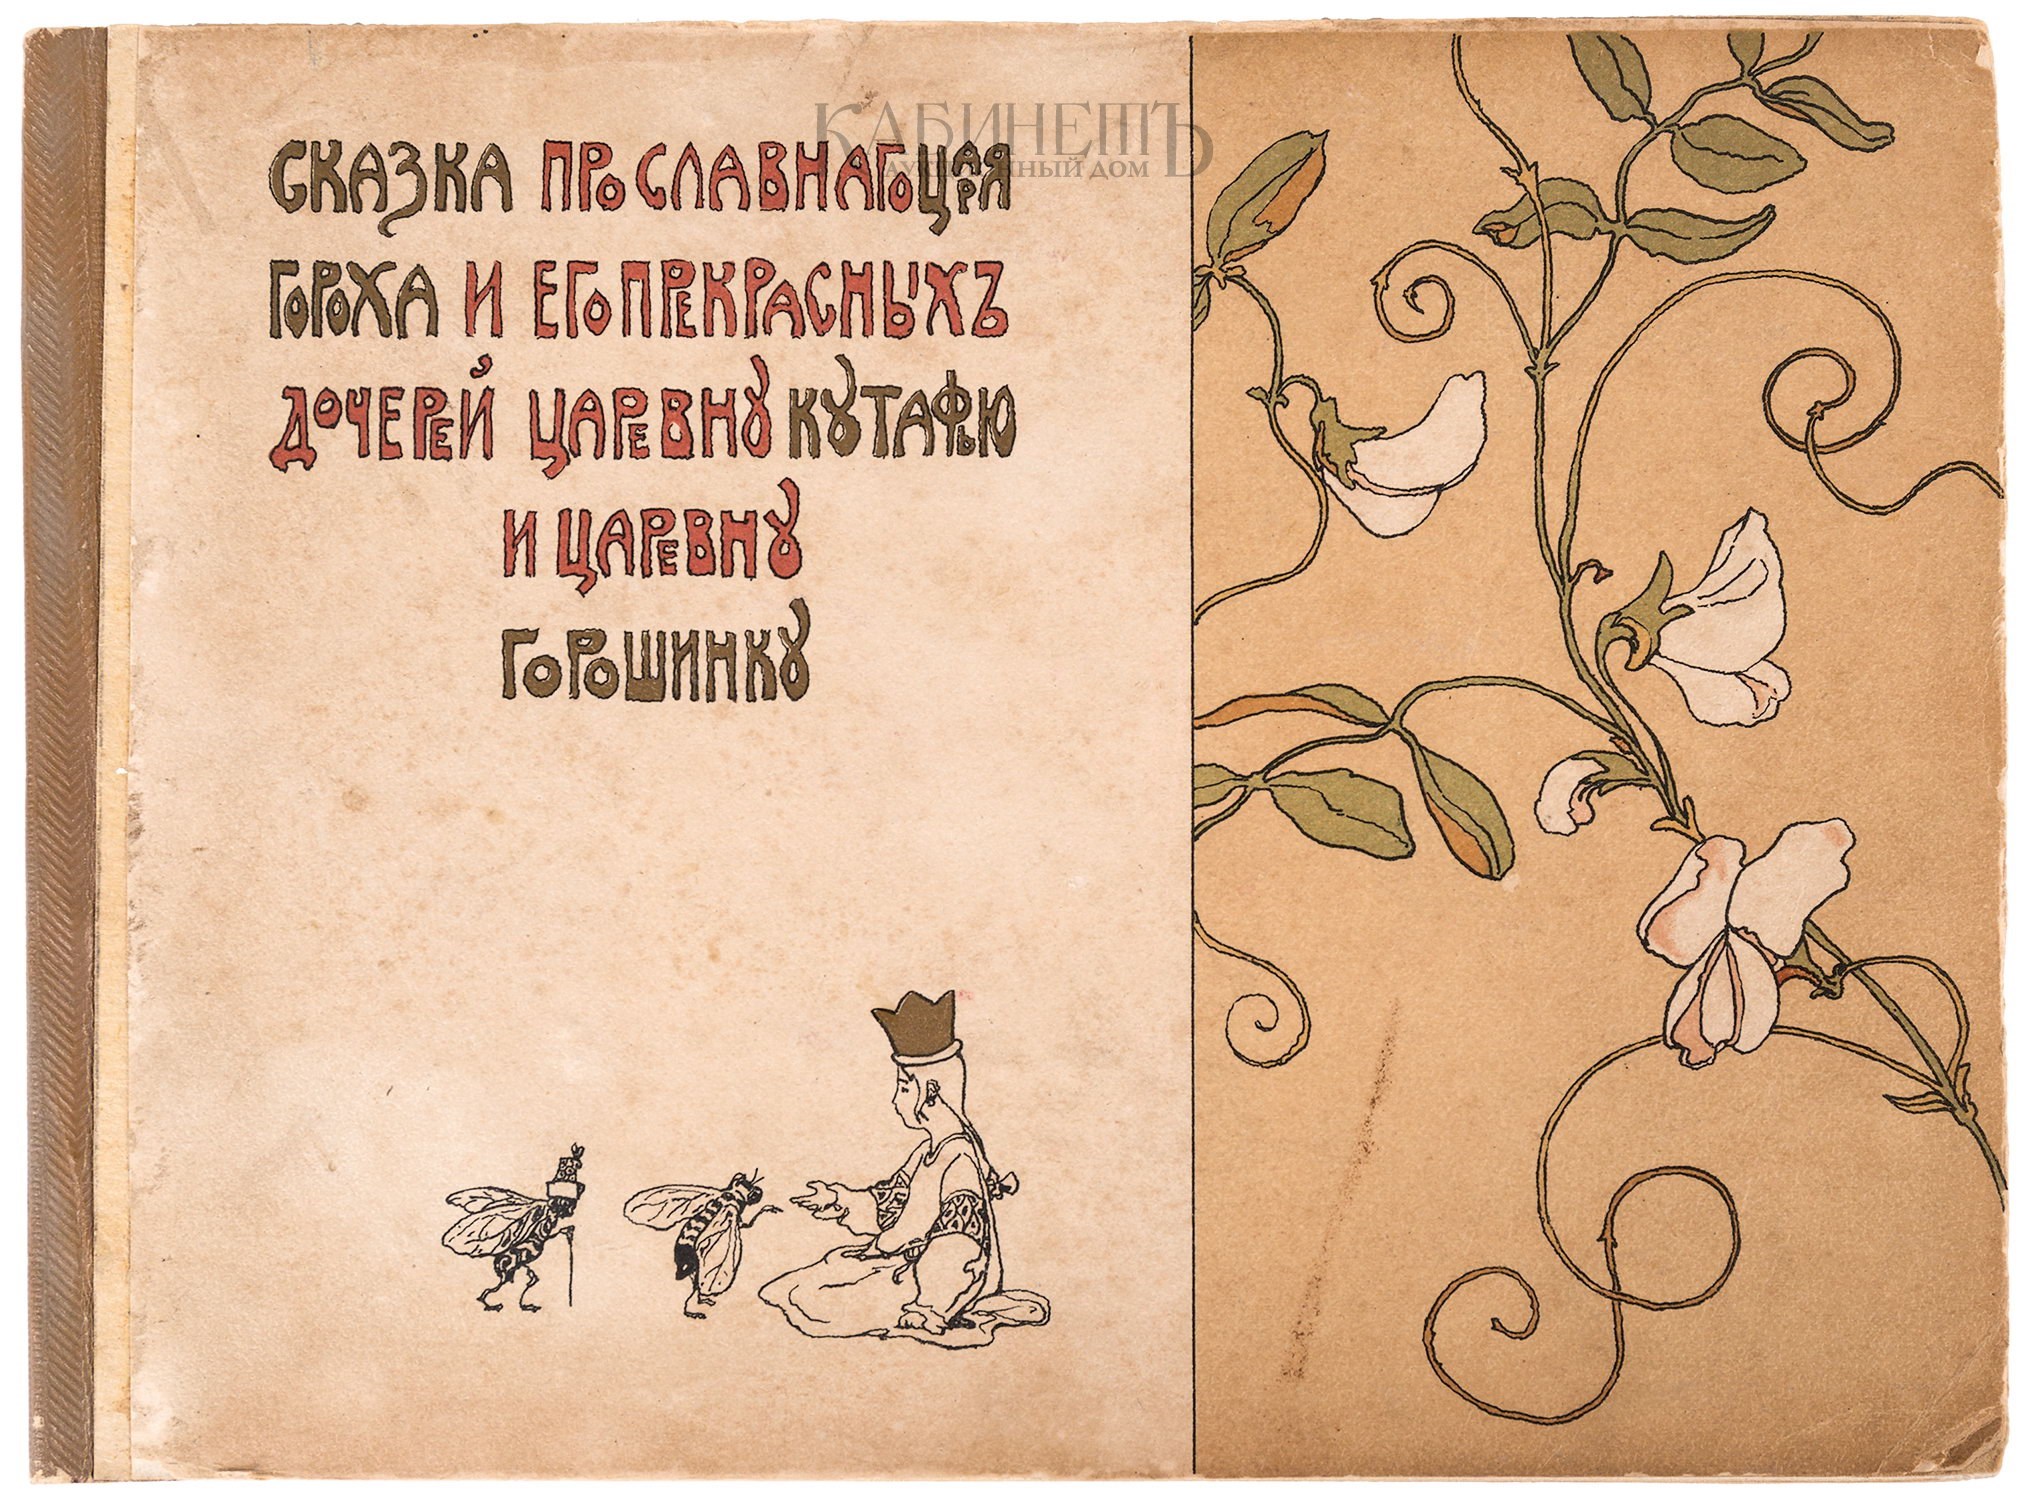 КАБИНЕТЪ
АУКЦИОННЫЙ ДОМ
СКАЗКА ПРО СЛАВНАГО ЦАРЯ
ГОРОХА И ЕГО ПРЕКРАСНЫХЪ
ДОЧЕРЕЙ ЦАРЕВНУ КУТАФЬЮ
И ЦАРЕВНУ
ГОРОШИНКУ